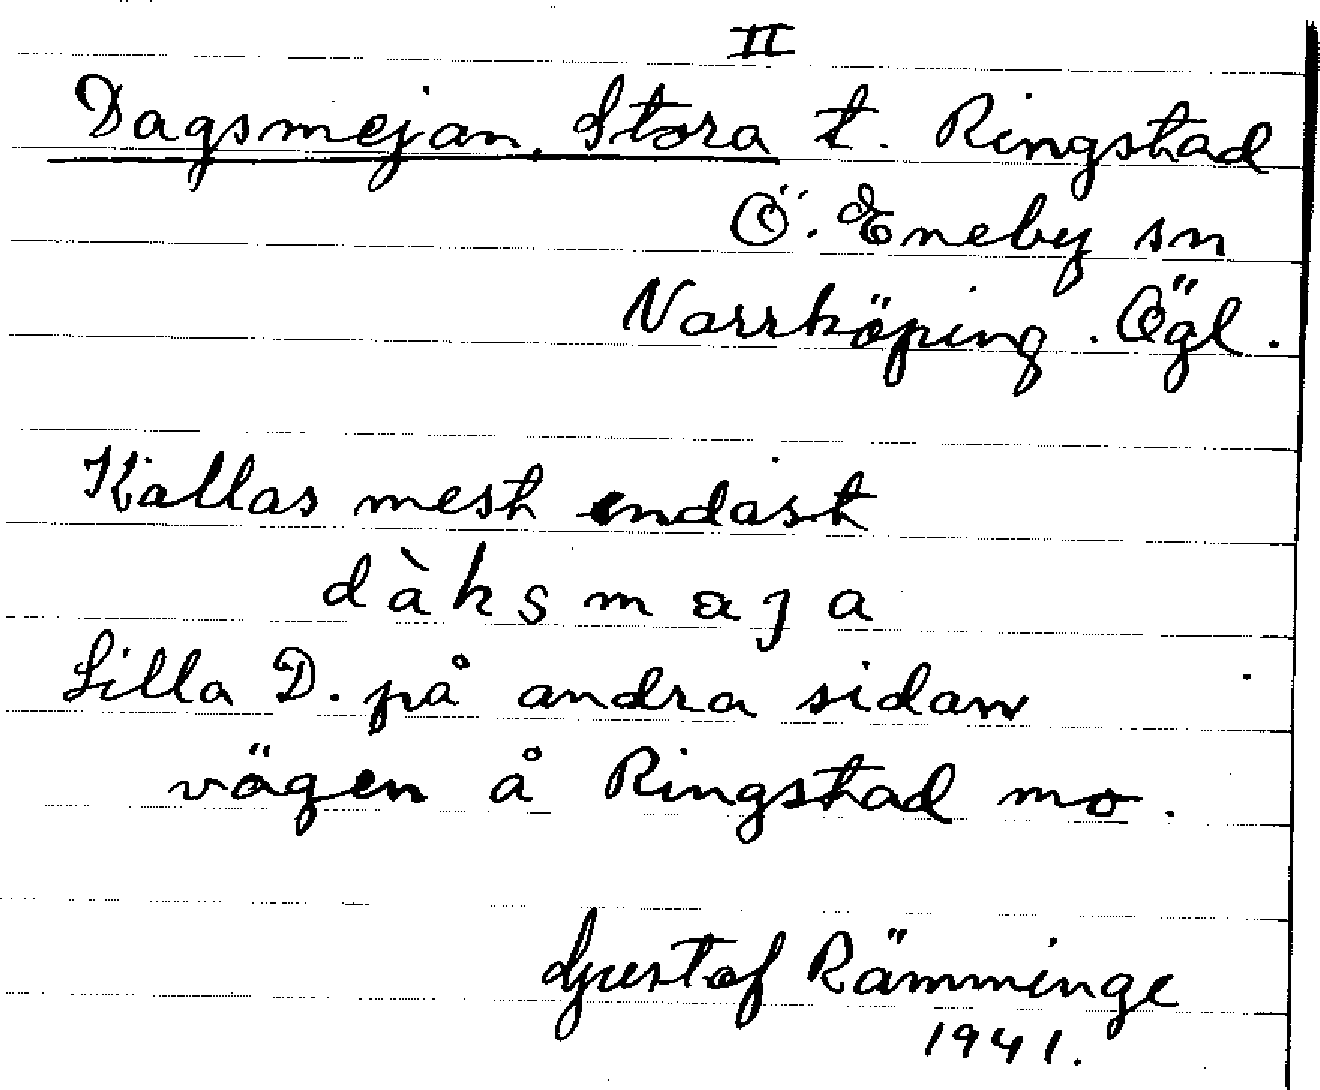 II
Dagsmejan, Stora t. Ringstad
Ö. Eneby sn
Norrköping. Ögl.
Kallas mest endast
dàksmaja
Lilla D. på andra sidan
vägen å Ringstad mo.
Gustof Rämminge
1941.